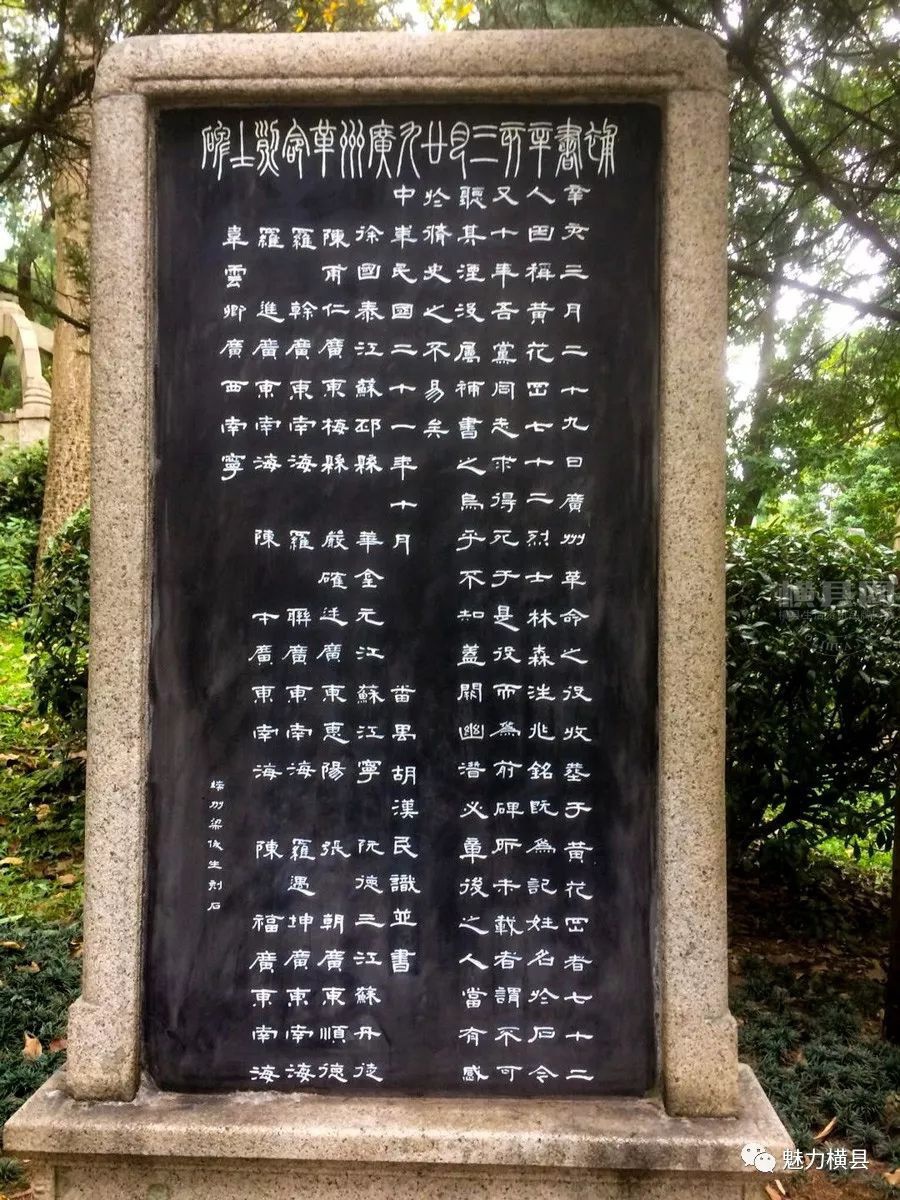 補書辛亥三月廿九廣州革命烈士碑
辛亥三月二十九日廣州革命之役收葬于黃花岡者七十二
人因稱黃花岡七十二烈士林森汪兆銘既為記姓名於石今
又十年吾黨同志求得死于是役而為前碑所未載者謂不可
聽其湮没屬補書之烏乎不知蓋闕幽潛必章後之人當有感
於脩史之不易矣
中華民國二十一年十月 番禺 胡漢民識並書
徐國泰江蘇邳縣 華金元江蘇江寧 阮德三江蘇丹徒
陳甫仁廣東梅縣 嚴確廷廣東惠陽 張朝廣東順德
羅幹廣東南海 羅聯廣東南海 羅遇坤廣東南海
羅進廣東南海 陳才廣東南海 陳福廣東南海
韋雲卿廣西南寧
梁俊生刻石
魅力橫县